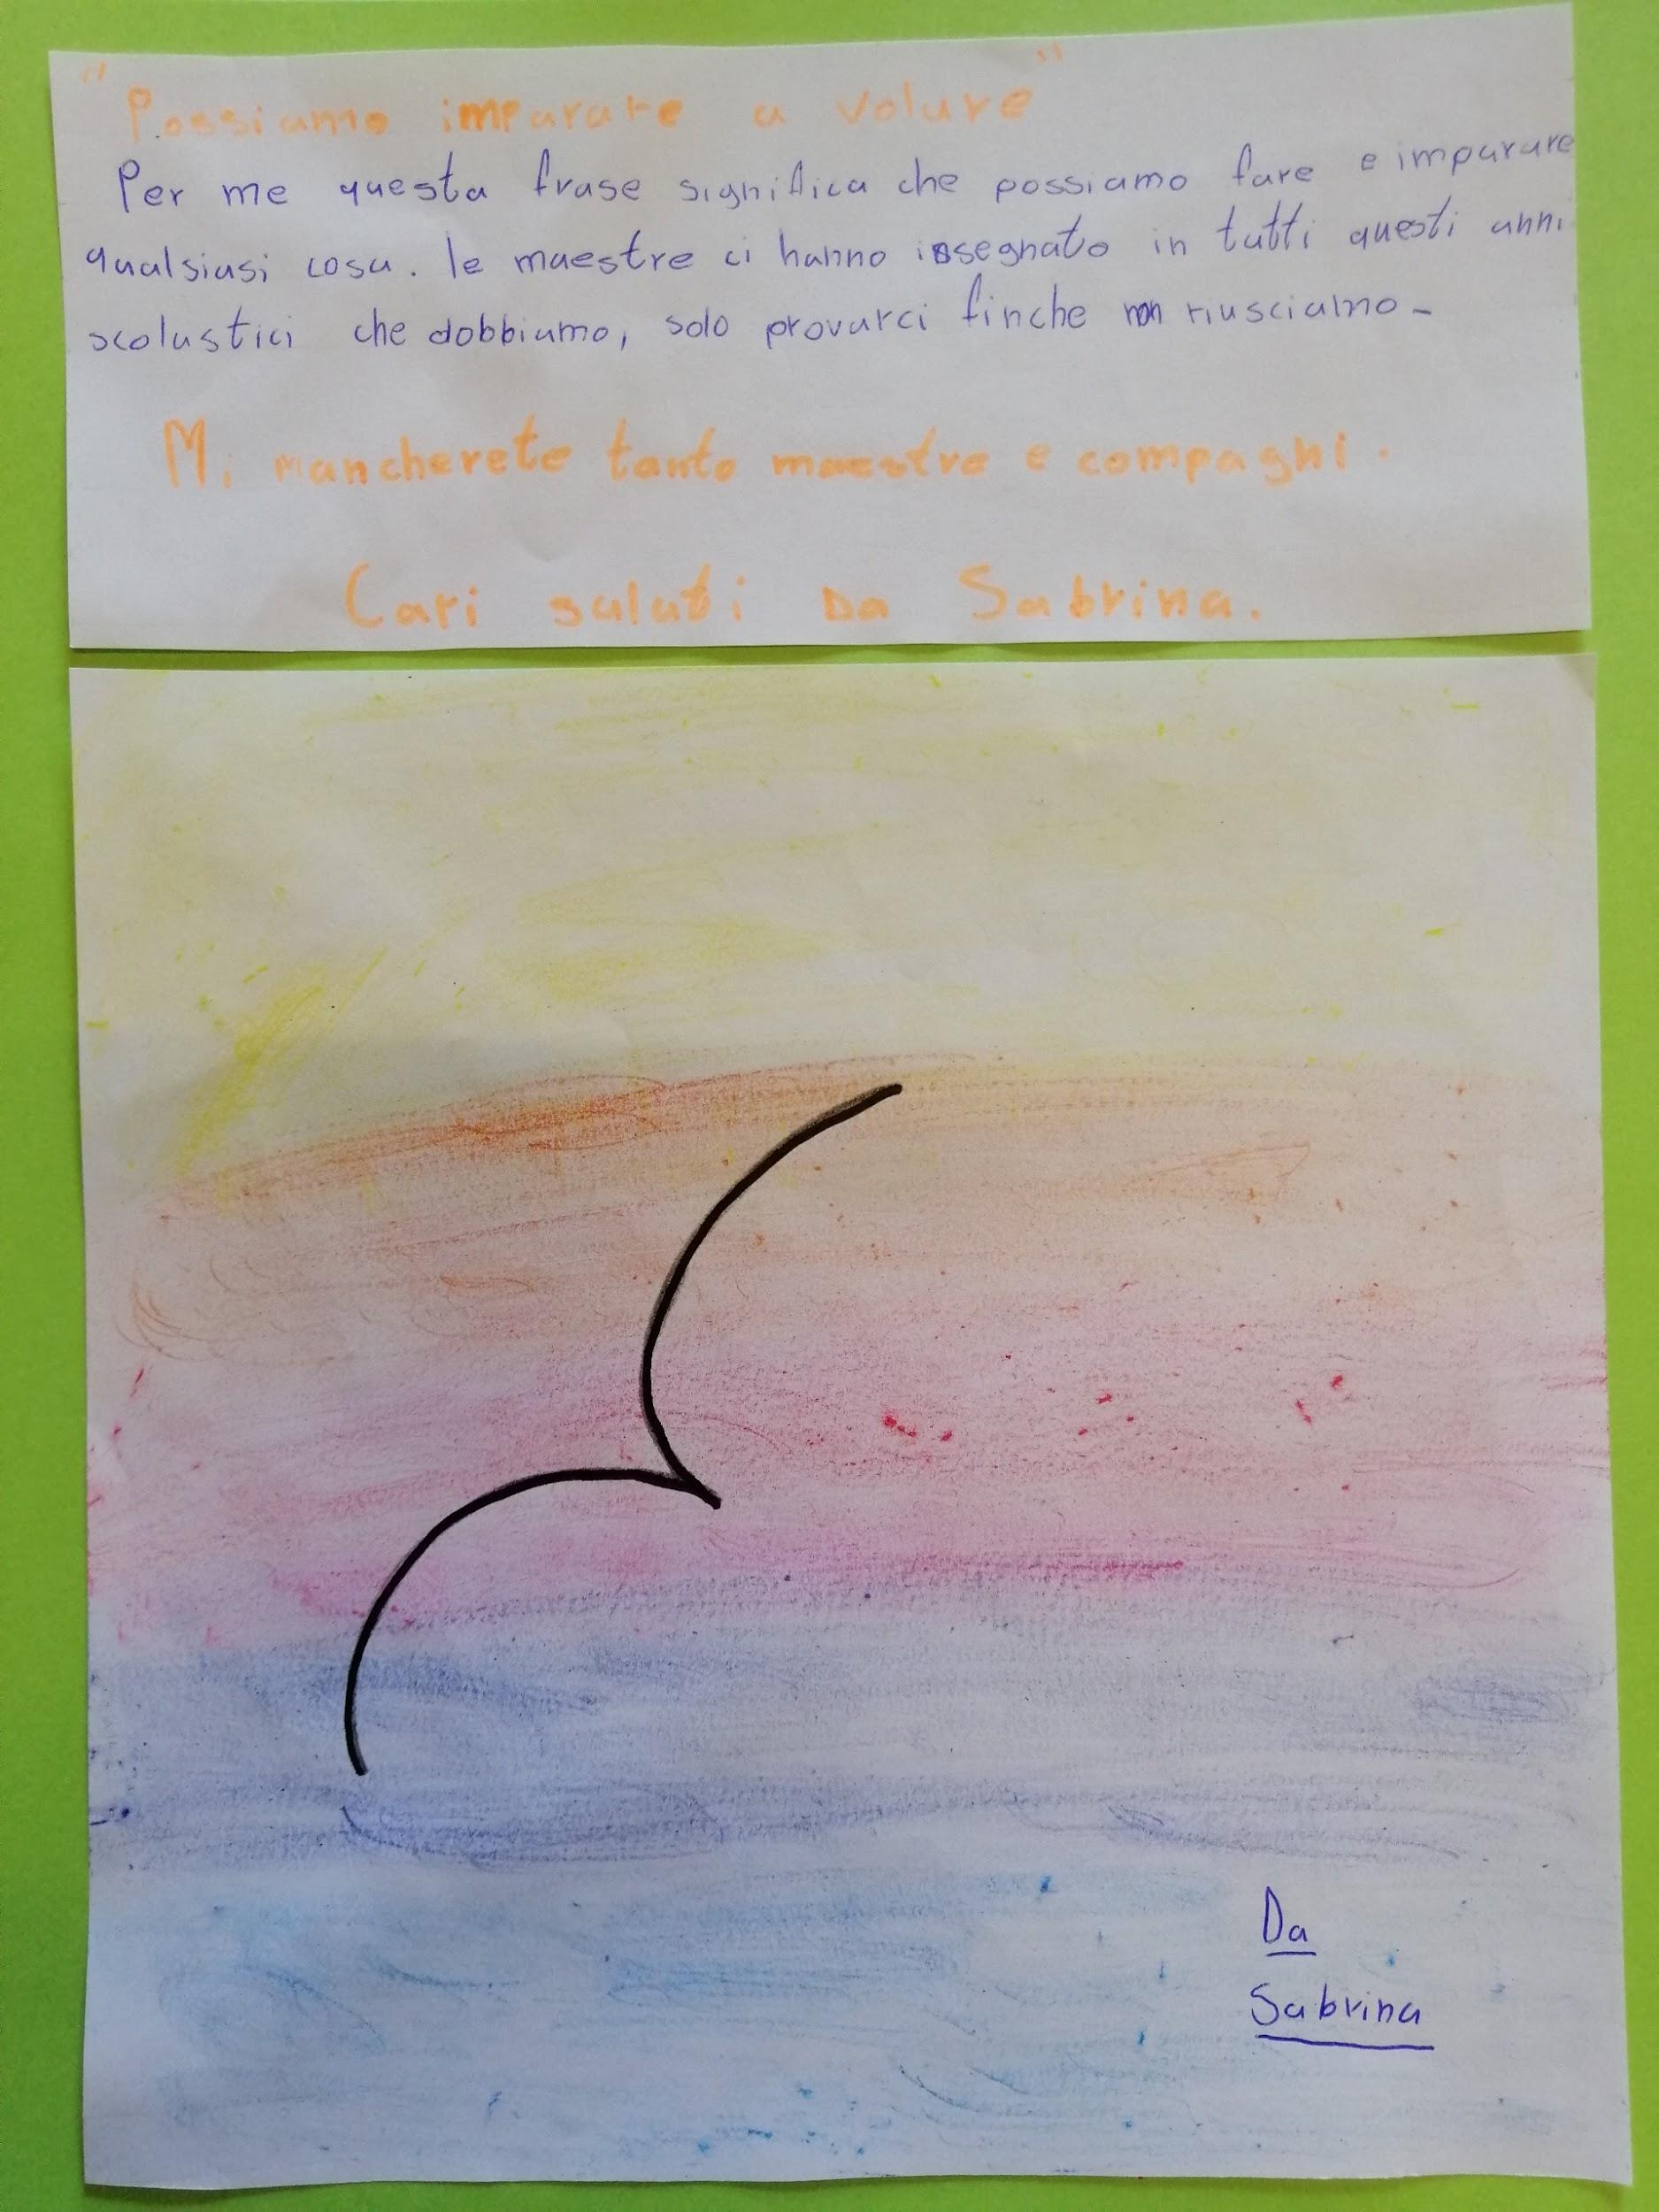 "Possiamo imparare a volare"
Per me questa frase significa che possiamo fare e imparare
qualsiasi cosa. le maestre ci hanno insegnato in tutti questi anni
scolastici che dobbiamo, solo provarci finche non riusciamo.
Mi mancherete tanto maestre e compagni.
Cari saluti Da Sabrina.
Da
Sabrina